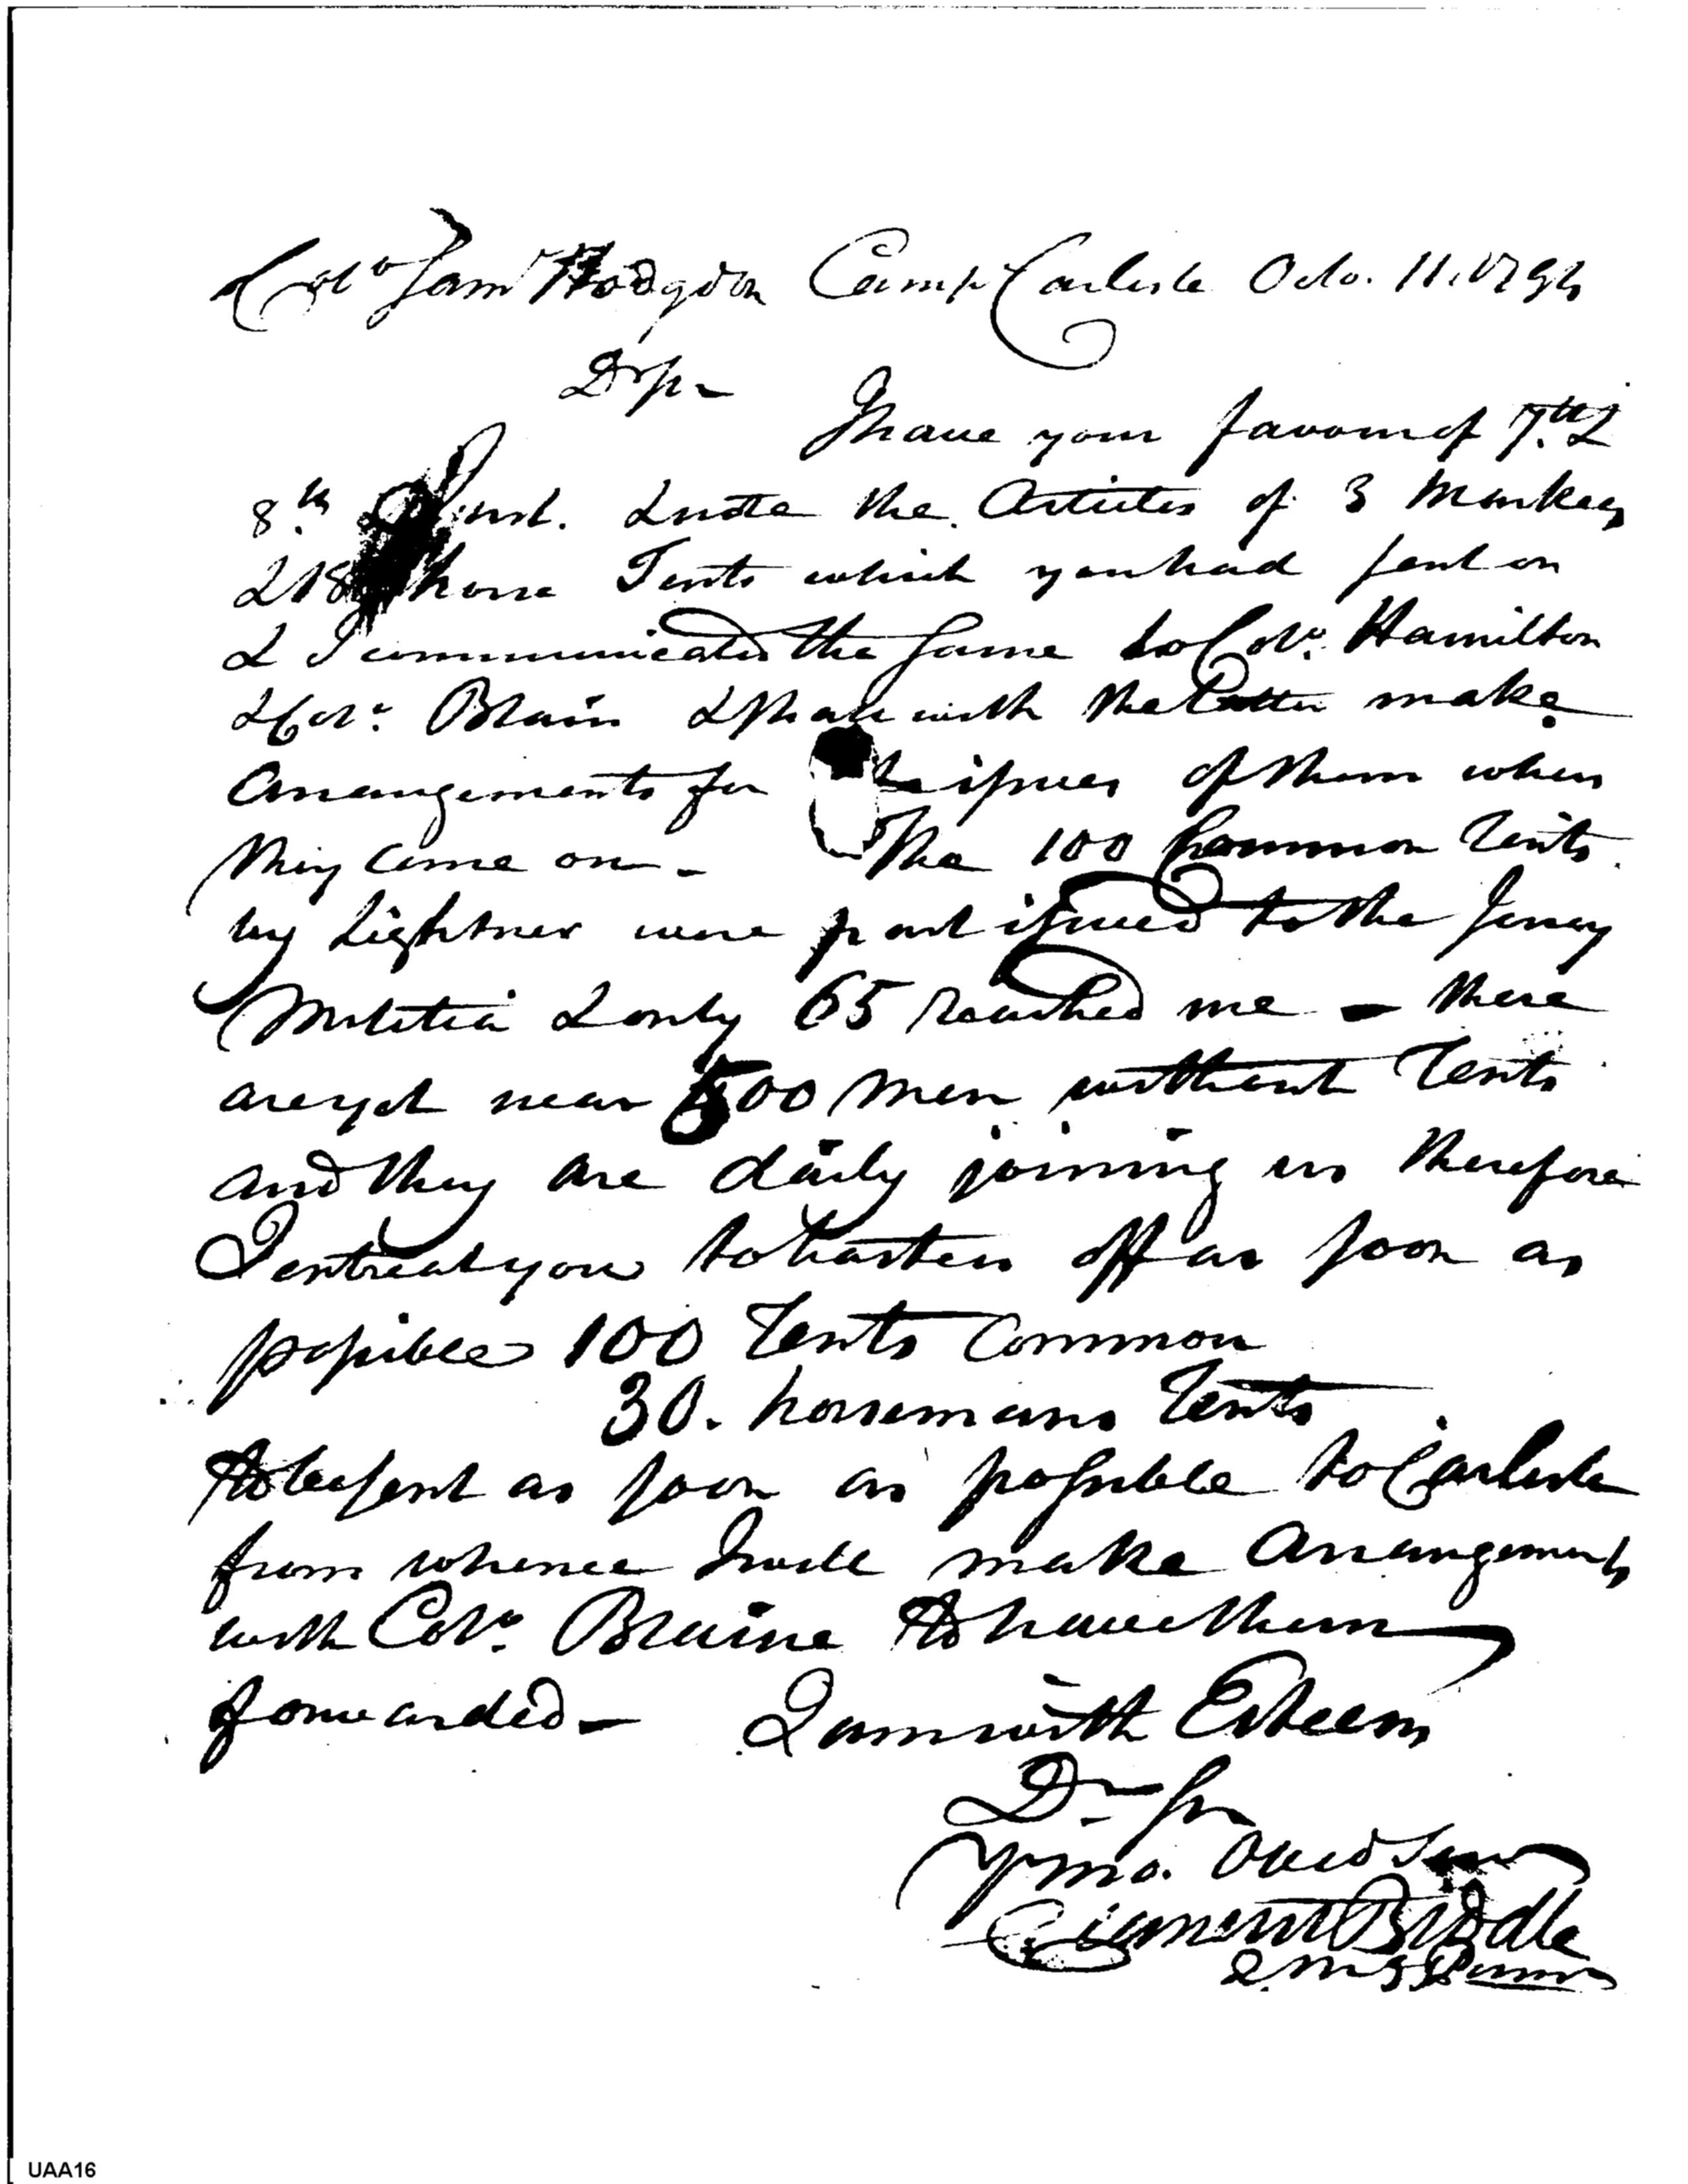 Colo Saml Hodgdon Camp Carlisle Octo. 11. 1794
Dr Sir
I have your favour of 7th &
8th Inst. & note the Articles of 3 Markees
& 18 horse Tents which you had sent on
& I communicated the same to Colo. Hamilton
& Colo. Blain & shall with the latter make
Arrangements for the issues of them when
they come on - The 100 Common Tents
by Lightner were part issued to the Jersey
Militia & only 65 reached me - there
are yet near 500 men without Tents
and they are daily joining us therefore
I entreat you to hasten off as soon as
possible 100 Tents Common
30. horsemans Tents
to be sent as soon as possible to Carlisle
from whence I will make Arrangements
with Colo. Blaine to have them
forwarded - I am with Esteem
Dr Sir
Yr mo. Obed Serv
Clement Biddle
Q.M.G Penna
UAA16